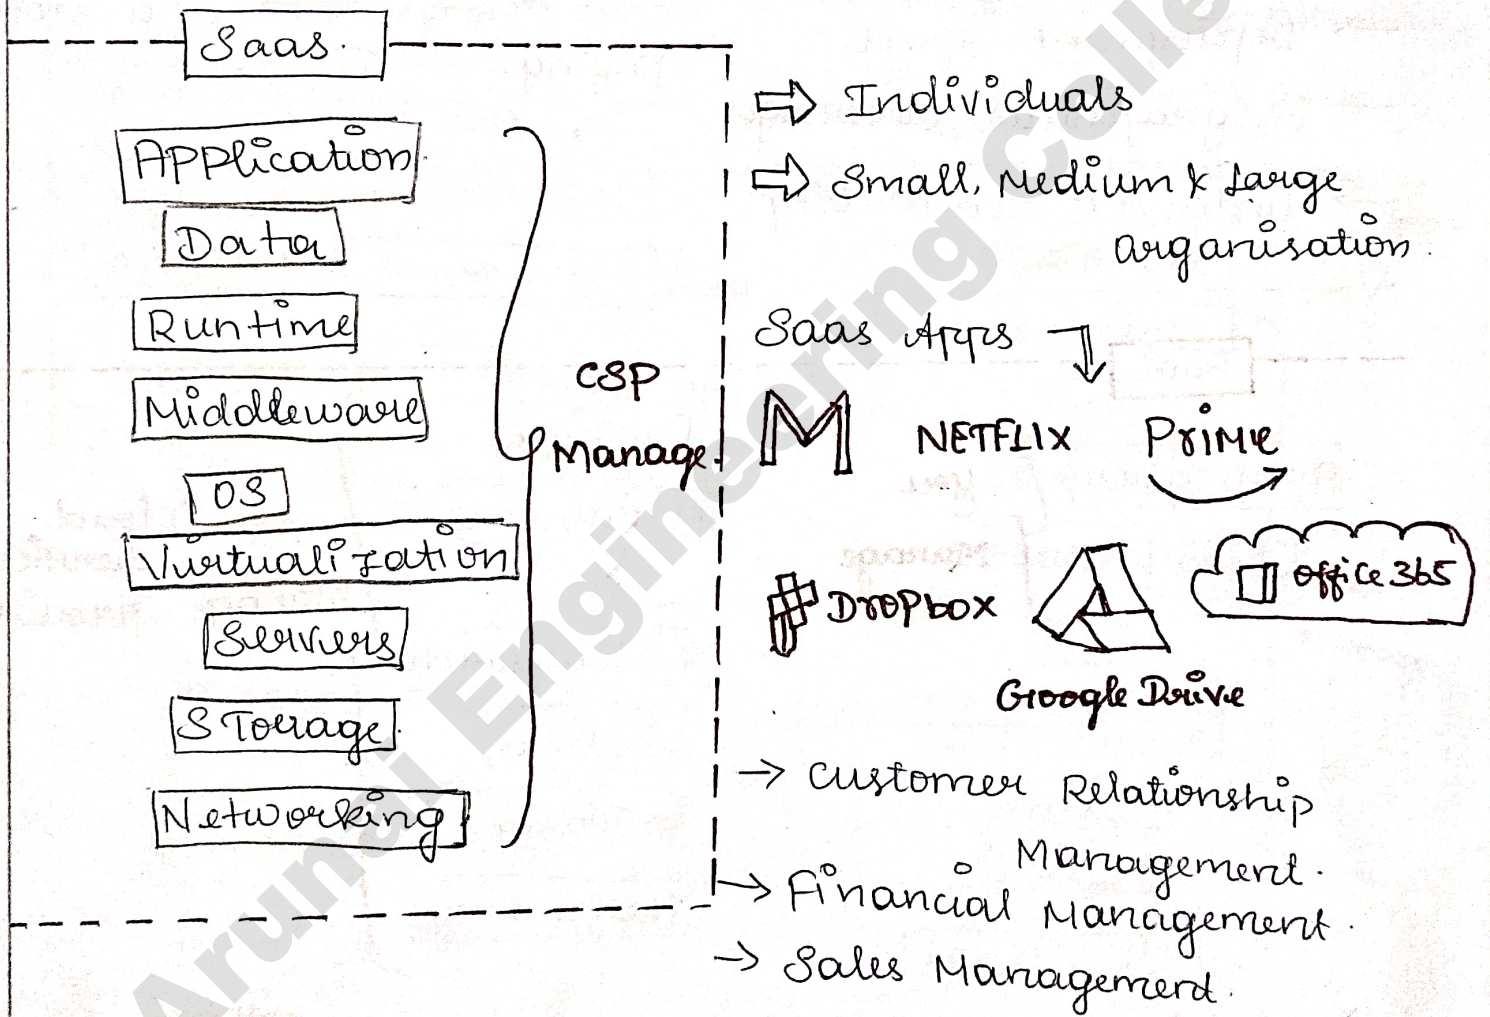 Saas.
Application.
Data
Runtime
Middleware
OS
Virtualization
Servers
Storage.
Networking
CSP
Manage.
Individuals
Small, Medium & Large
organisation.
Saas Apps
M NETFLIX Prime
Dropbox
Office 365
Google Drive
→ Customer Relationship
Management.
→ Financial Management.
→ Sales Management.
Arunai Engineering Colle